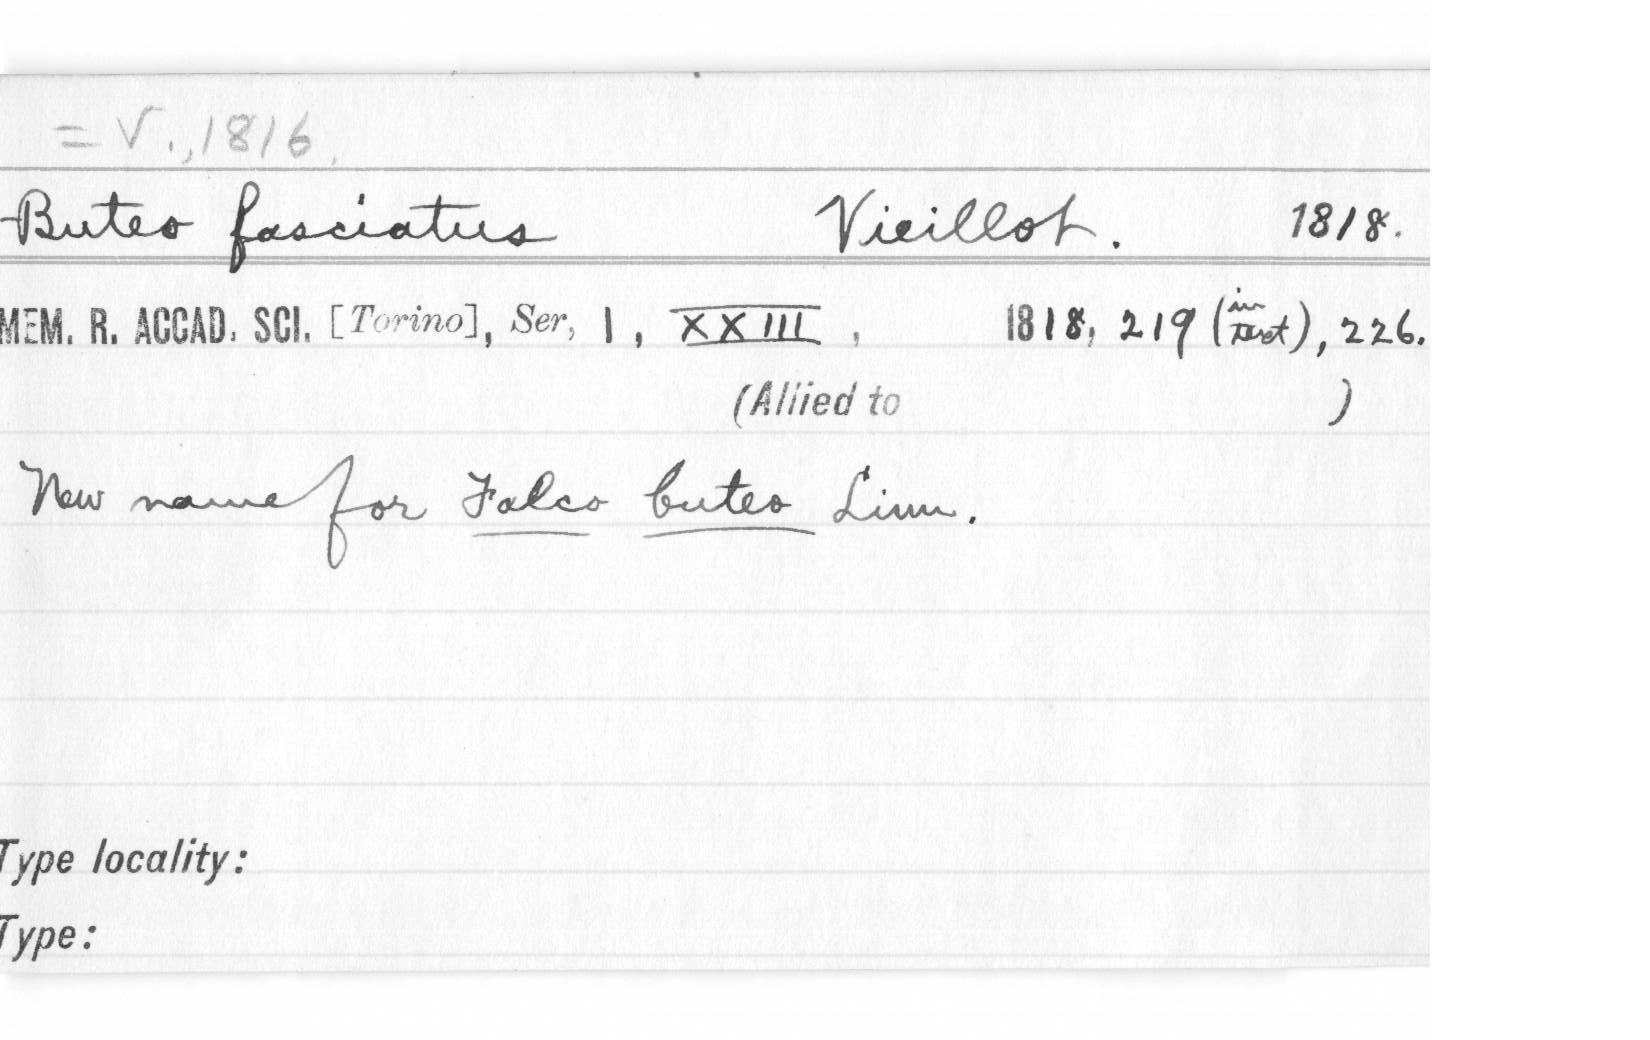 = V., 1816.
Buteo fasciatus Vieillot. 1818.
MEM. R. ACCAD. SCI. [Torino], Ser, 1, XXIII, 1818, 219 (in text), 226.
(Allied to )
New name for Falco buteo Linn.
Type locality:
Type: